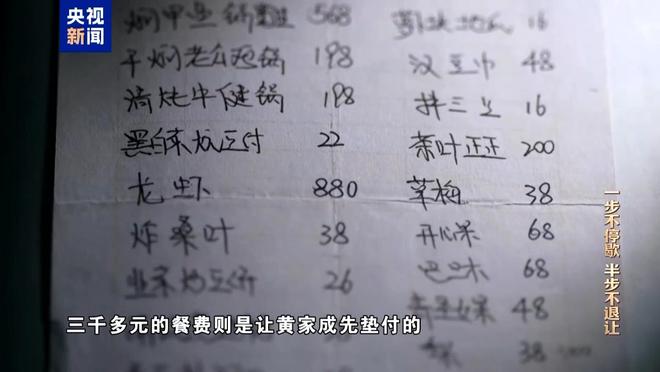 央视
新闻
568
16
干焖老公鸡锅 198
汉豆巾 48
清炖牛健锅 198
拌三丝 16
黑白菜炖豆付 22
茶叶正正 200
龙虾 880
草梅 38
炸桑叶 38
开心果 68
26
68
48
38
一步不停歇 半步不退让
三千多元的餐费则是让黄家成先垫付的